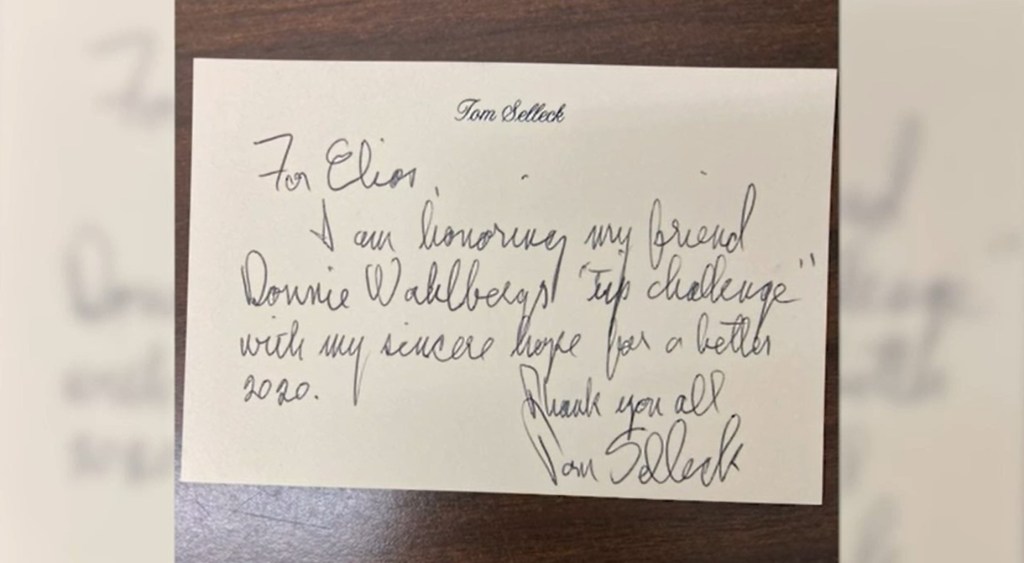 Tom Selleck
For Elios,
I am honoring my friend
Donnie Wahlbergs "Tip challenge"
with my sincere hope for a better
2020.
Thank you all
Tom Selleck